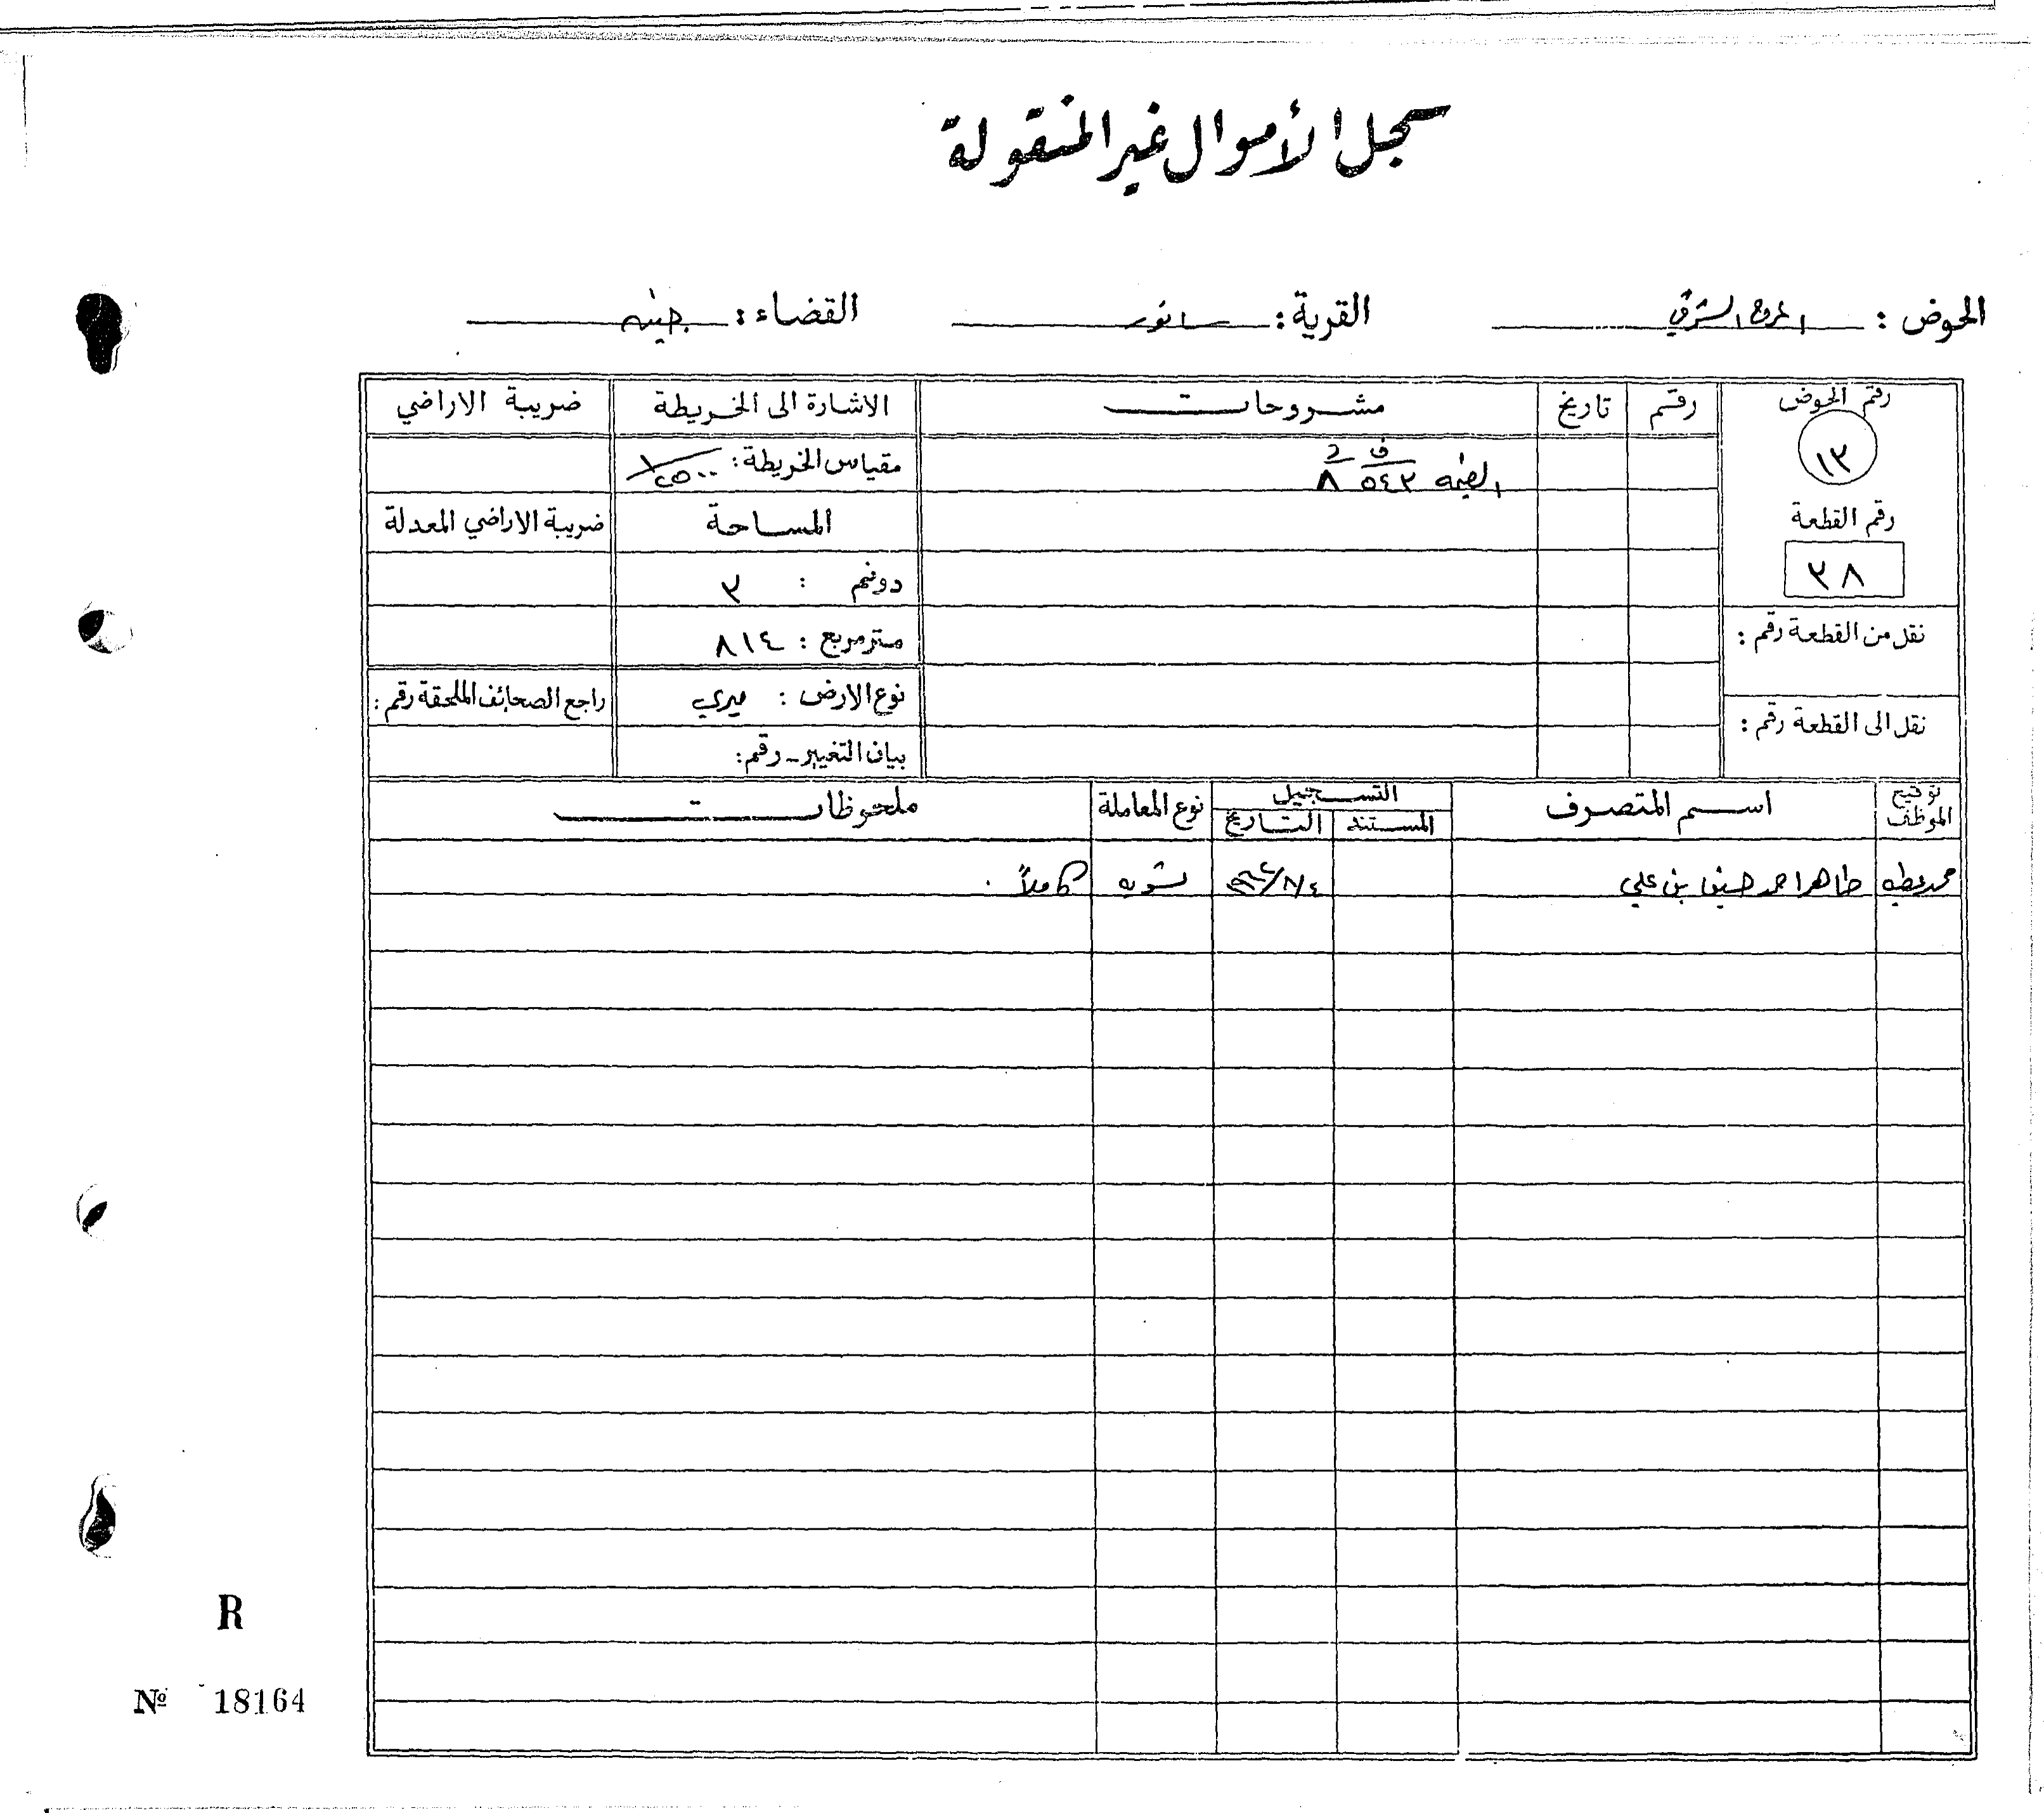 سجل الأموال غير المنقولة
الحوض : المرج الشرقي القرية : سانور القضاء : جنين
رقم الحوض رقم تاريخ مشروحات الاشارة الى الخريطة ضريبة الاراضي
١٣
ف د
القيمة ٥٤٣ ٨
مقياس الخريطة : ١/٢٥٠٠
رقم القطعة المساحة ضريبة الاراضي المعدلة
٣٨ دونم : ٣
نقل من القطعة رقم : متر مربع : ٨١٤
نوع الارض : ميري راجع الصحائف الملحقة رقم :
نقل الى القطعة رقم :
بيان التغيير - رقم :
توقيع الموظف اسم المتصرف التسجيل نوع المعاملة ملحوظات
المستند التاريخ
طاهر احمد حسين بن علي تسوية كاملاً .
R
Nº 18164